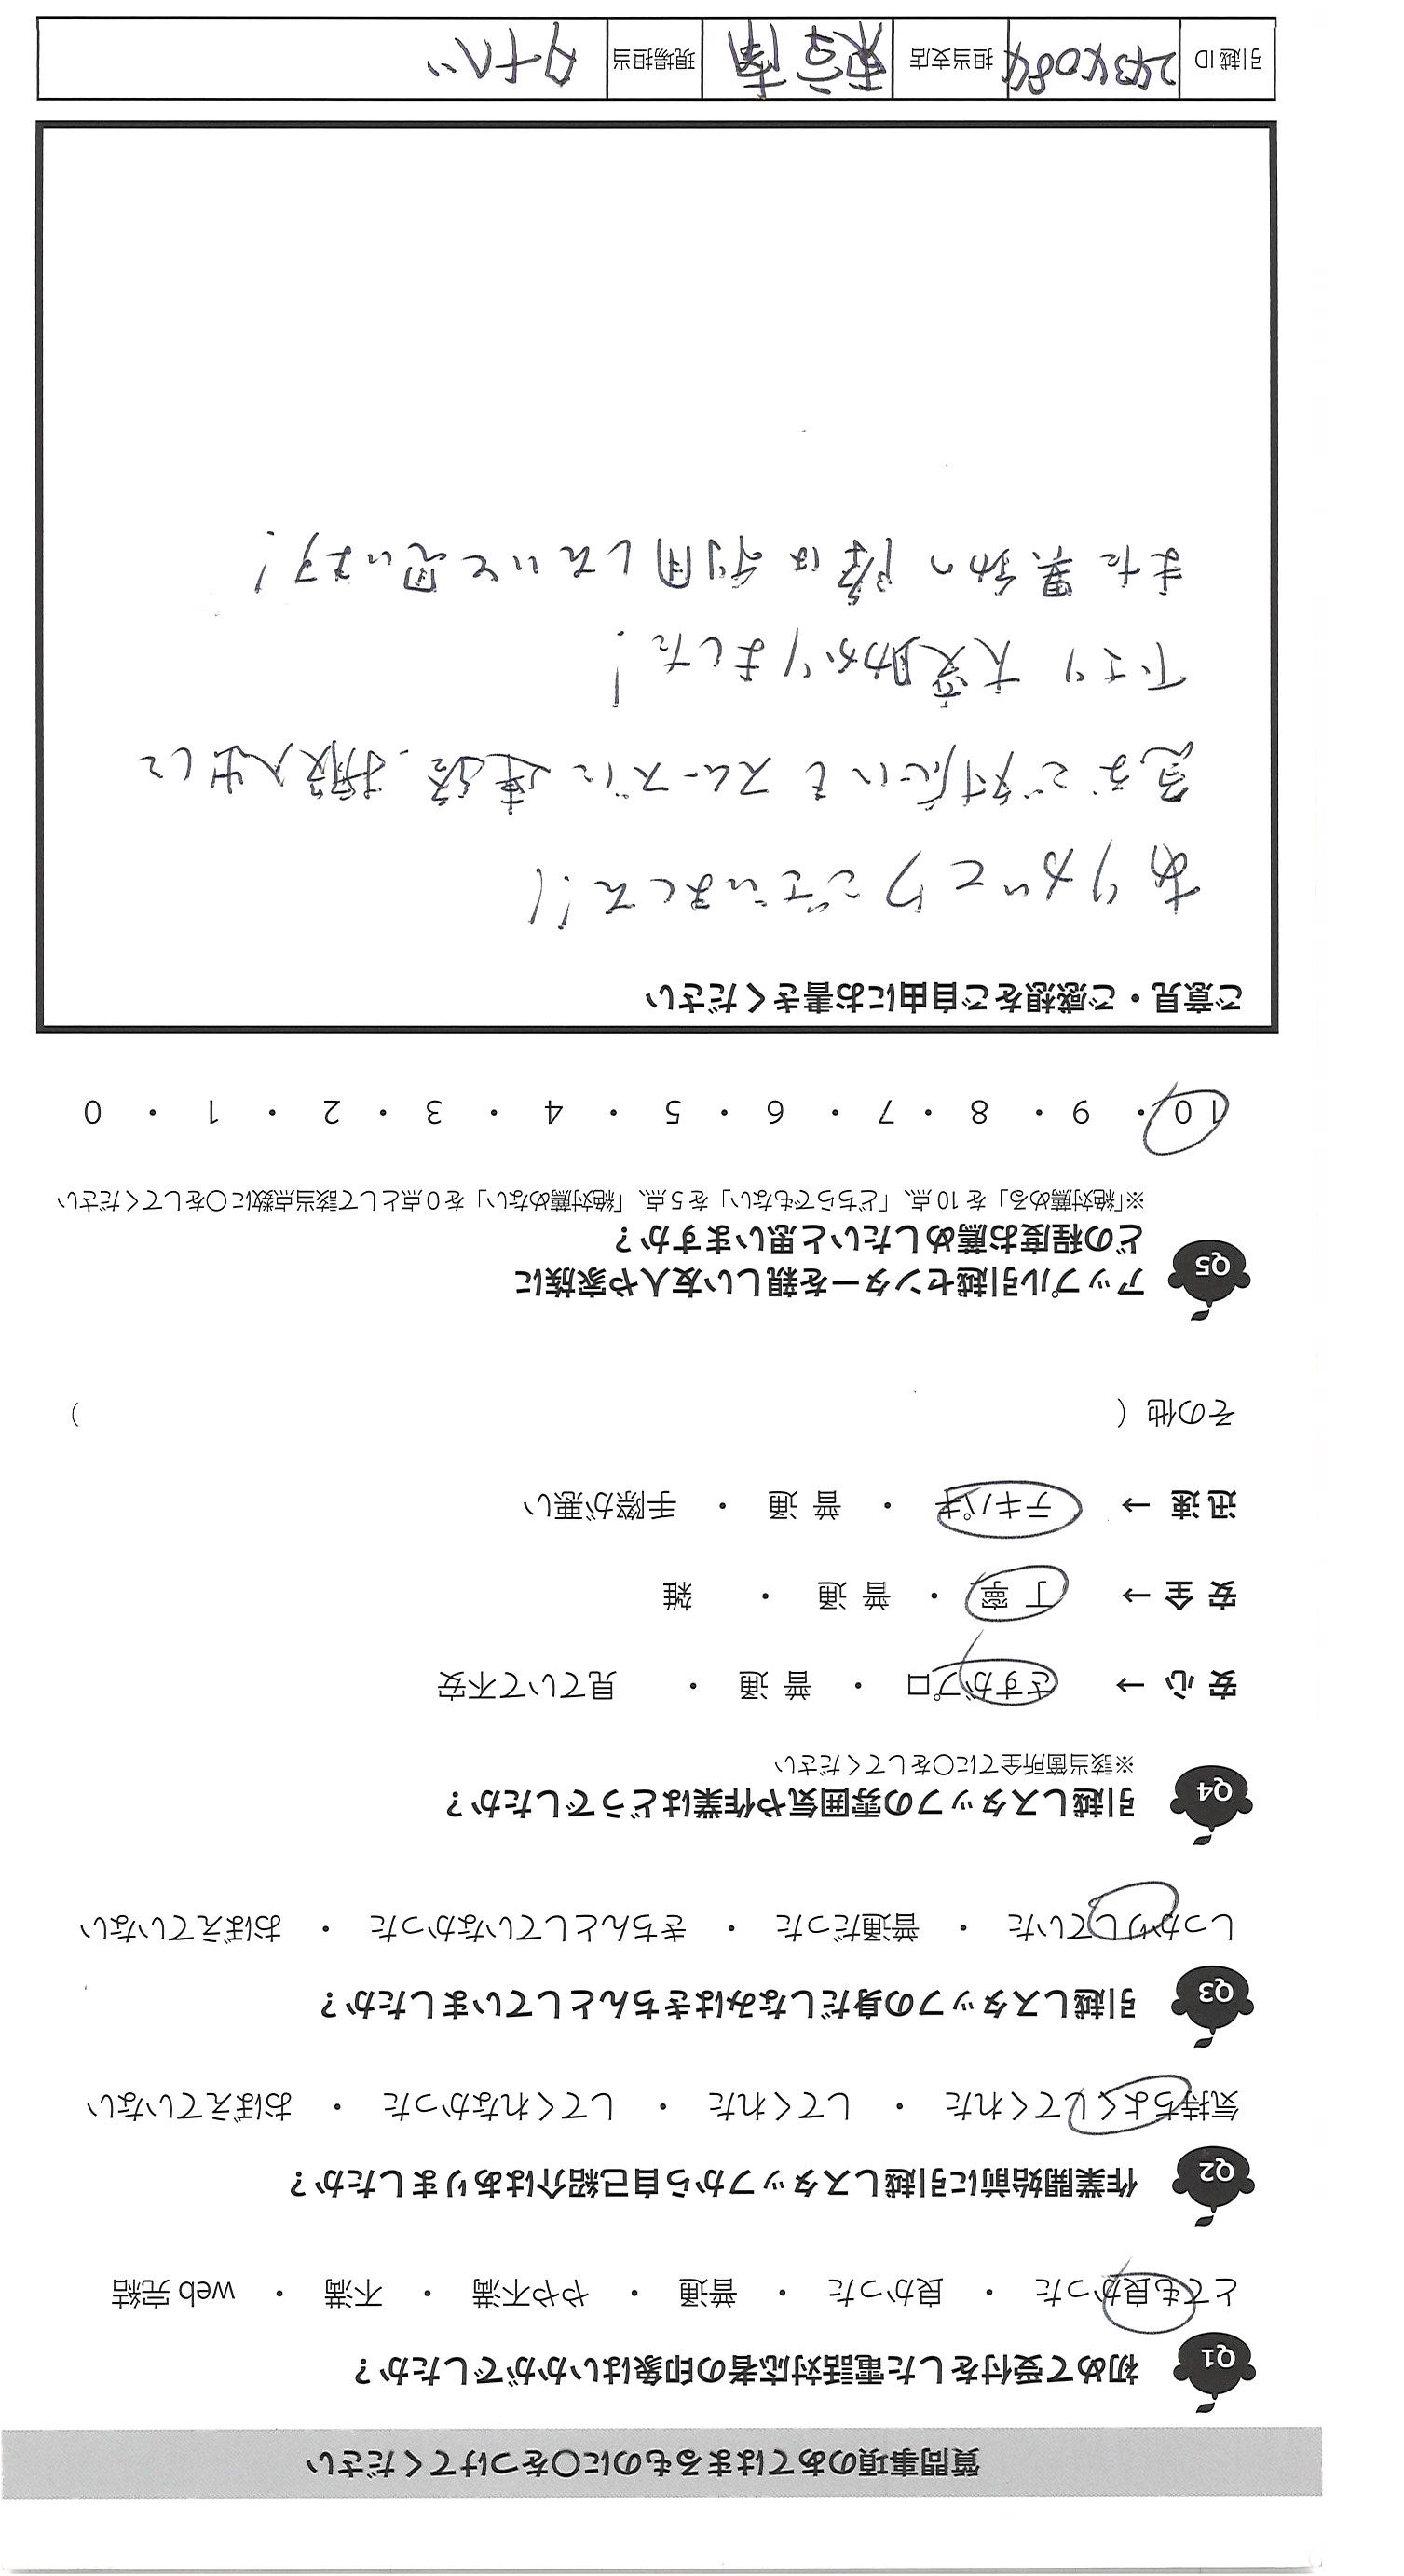 質問事項のあてはまるものに〇をつけてください
Q1 初めて受付をした電話対応者の印象はいかがでしたか？
とても良かった ・ 良かった ・ 普通 ・ やや不満 ・ 不満 ・ web 完結
Q2 作業開始前に引越しスタッフから自己紹介はありましたか？
気持ちよくしてくれた ・ してくれた ・ してくれなかった ・ おぼえていない
Q3 引越しスタッフの身だしなみはきちんとしていましたか？
しっかりしていた ・ 普通だった ・ きちんとしていなかった ・ おぼえていない
Q4 引越しスタッフの雰囲気や作業はどうでしたか？
※該当箇所全てに〇をしてください
安 心 → さすがプロ ・ 普 通 ・ 見ていて不安
安 全 → 丁 寧 ・ 普 通 ・ 雑
迅 速 → テキパキ ・ 普 通 ・ 手際が悪い
その他（ ）
Q5 アップル引越センターを親しい友人や家族に
どの程度お薦めしたいと思いますか？
※「絶対薦める」を 10 点、「どちらでもない」を 5 点、「絶対薦めない」を 0 点として該当点数に〇をしてください
10 ・ 9 ・ 8 ・ 7 ・ 6 ・ 5 ・ 4 ・ 3 ・ 2 ・ 1 ・ 0
ご意見・ご感想をご自由にお書きください
ありがとうございました!!
急なご対応にもスムーズに連絡、搬入出して
下さり 大変助かりました!
また異動の際は利用したいと思います!
引越 ID 2434084 担当支店 東京南 現場担当